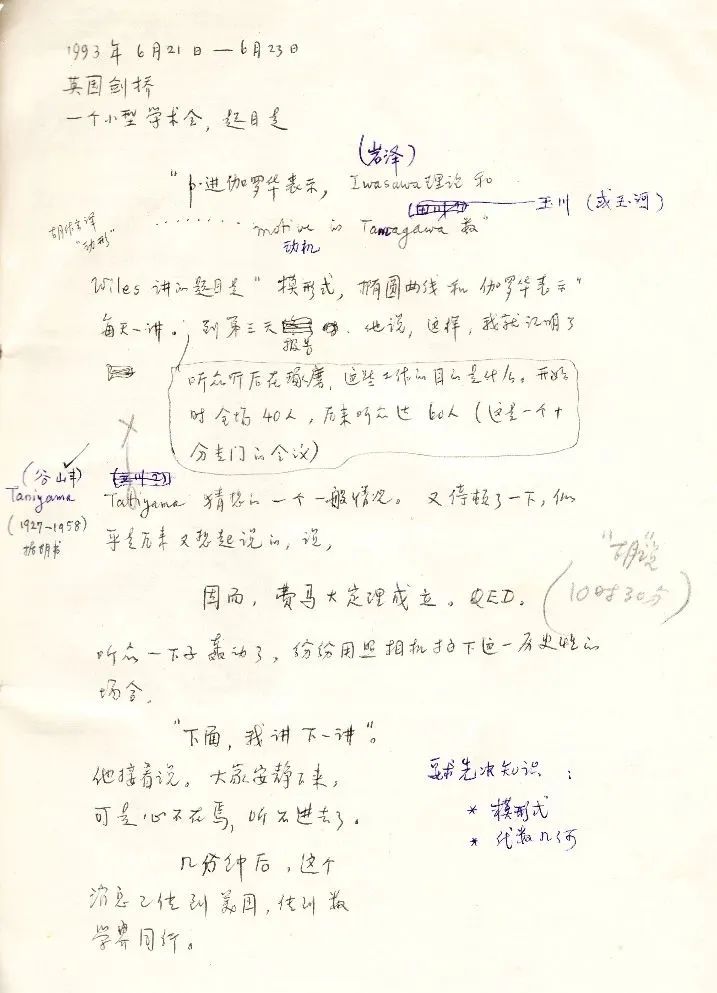 1993年6月21日—6月23日
英国剑桥
一个小型学术会,题目是
(岩泽)
"p-进伽罗华表示, Iwasawa理论和
玉川(或玉河)
胡作玄译
"动形"
········ motive的Tamagawa数"
动机
Wiles讲的题目是"模形式,椭圆曲线和伽罗华表示"
每天一讲。到第三天 他说,这样,我就证明了
报告
听众听后在琢磨,这些工作的目的是什么。开始
时全场40人,后来听众达60人(这是一个十
分专门的会议)
(谷山丰)
Taniyama
(1927-1958)
据胡书
Taniyama猜想的一个一般情况。又停顿了一下,似
乎是后来又想起说的,说,
因而,费马大定理成立。QED.
"胡"说
(10时30分)
听众一下子轰动了,纷纷用照相机拍下这一历史性的
场合.
"下面,我讲下一讲"。
他接着说。大家安静下来,
可是心不在焉,听不进去了。
要求先决知识:
* 模形式
* 代数几何
几分钟后,这个
消息已传到美国,传到数
学界同行。